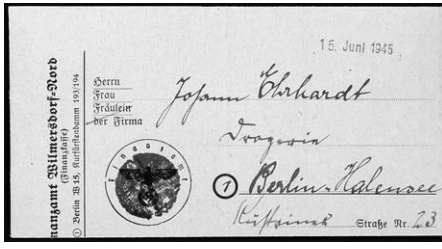 15. Juni 1945
Finanzamt Wilmersdorf-Nord
(Finanzkasse)
① Berlin W 15, Kurfürstendamm 193/194
Herrn
Frau
Fräulein
der Firma
Johann Ehrhardt
Drogerie
① Berlin-Halensee
Küstriner Straße Nr. 23
Finanzamt